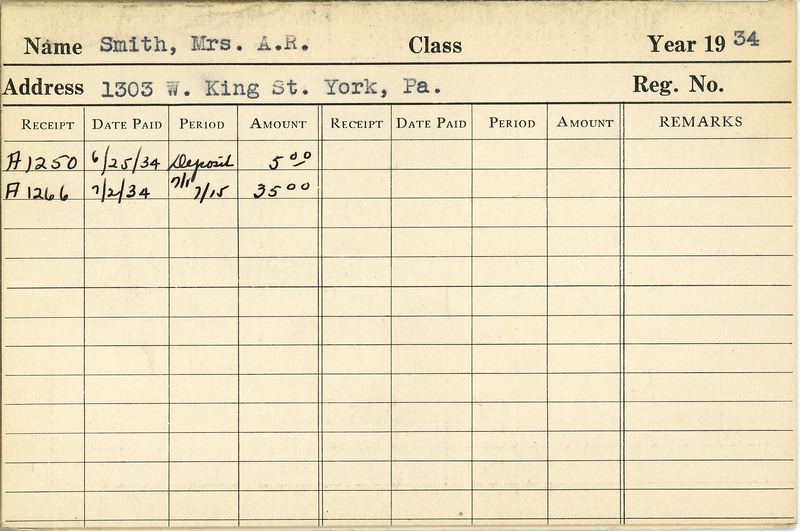 Name Smith, Mrs. A.R. Class Year 19 34
Address 1303 W. King St. York, Pa. Reg. No.
RECEIPT DATE PAID PERIOD AMOUNT RECEIPT DATE PAID PERIOD AMOUNT REMARKS
A1250 6/25/34 Deposit 5 00
A1266 7/2/34 7/1 7/15 35 00